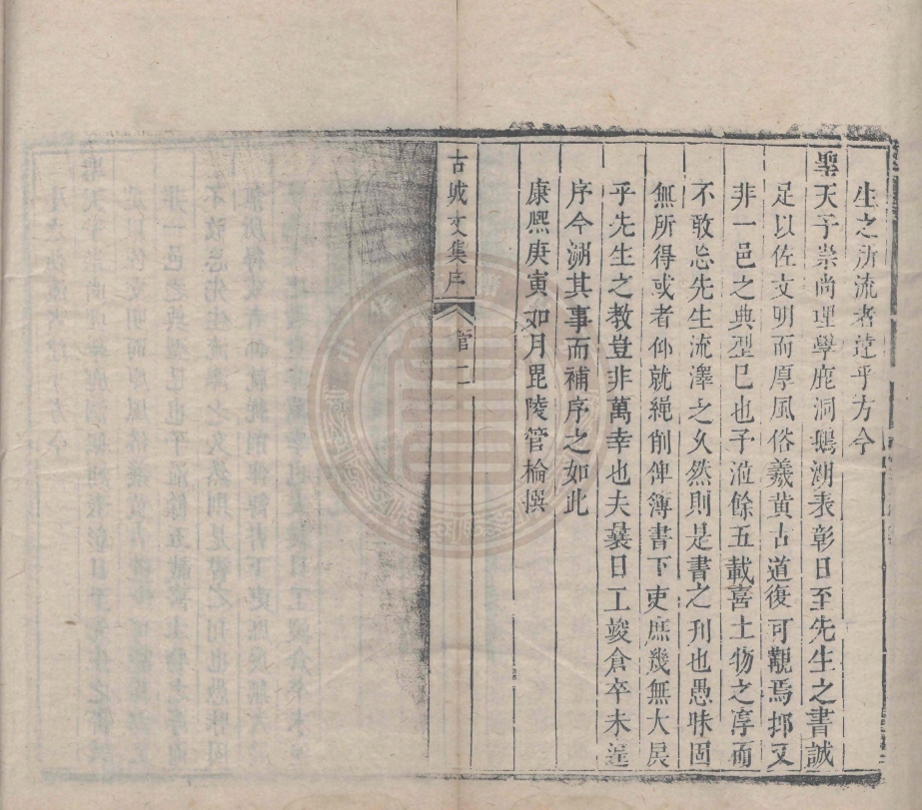 生之所流者遠乎方今
聖天子崇尚理學鹿洞鵝湖表彰日至先生之書誠
足以佐文明而厚風俗羲黃古道復可觀焉抑又
非一邑之典型巳也予涖餘五載喜土物之淳而
不敢忘先生流澤之久然則是書之刋也愚昧固
無所得或者仰就繩削俾簿書下吏庶幾無大戾
乎先生之教豈非萬幸也夫曩日工竣倉卒未遑
序今溯其事而補序之如此
康熙庚寅如月毘陵管棆撰
古城文集序
管二